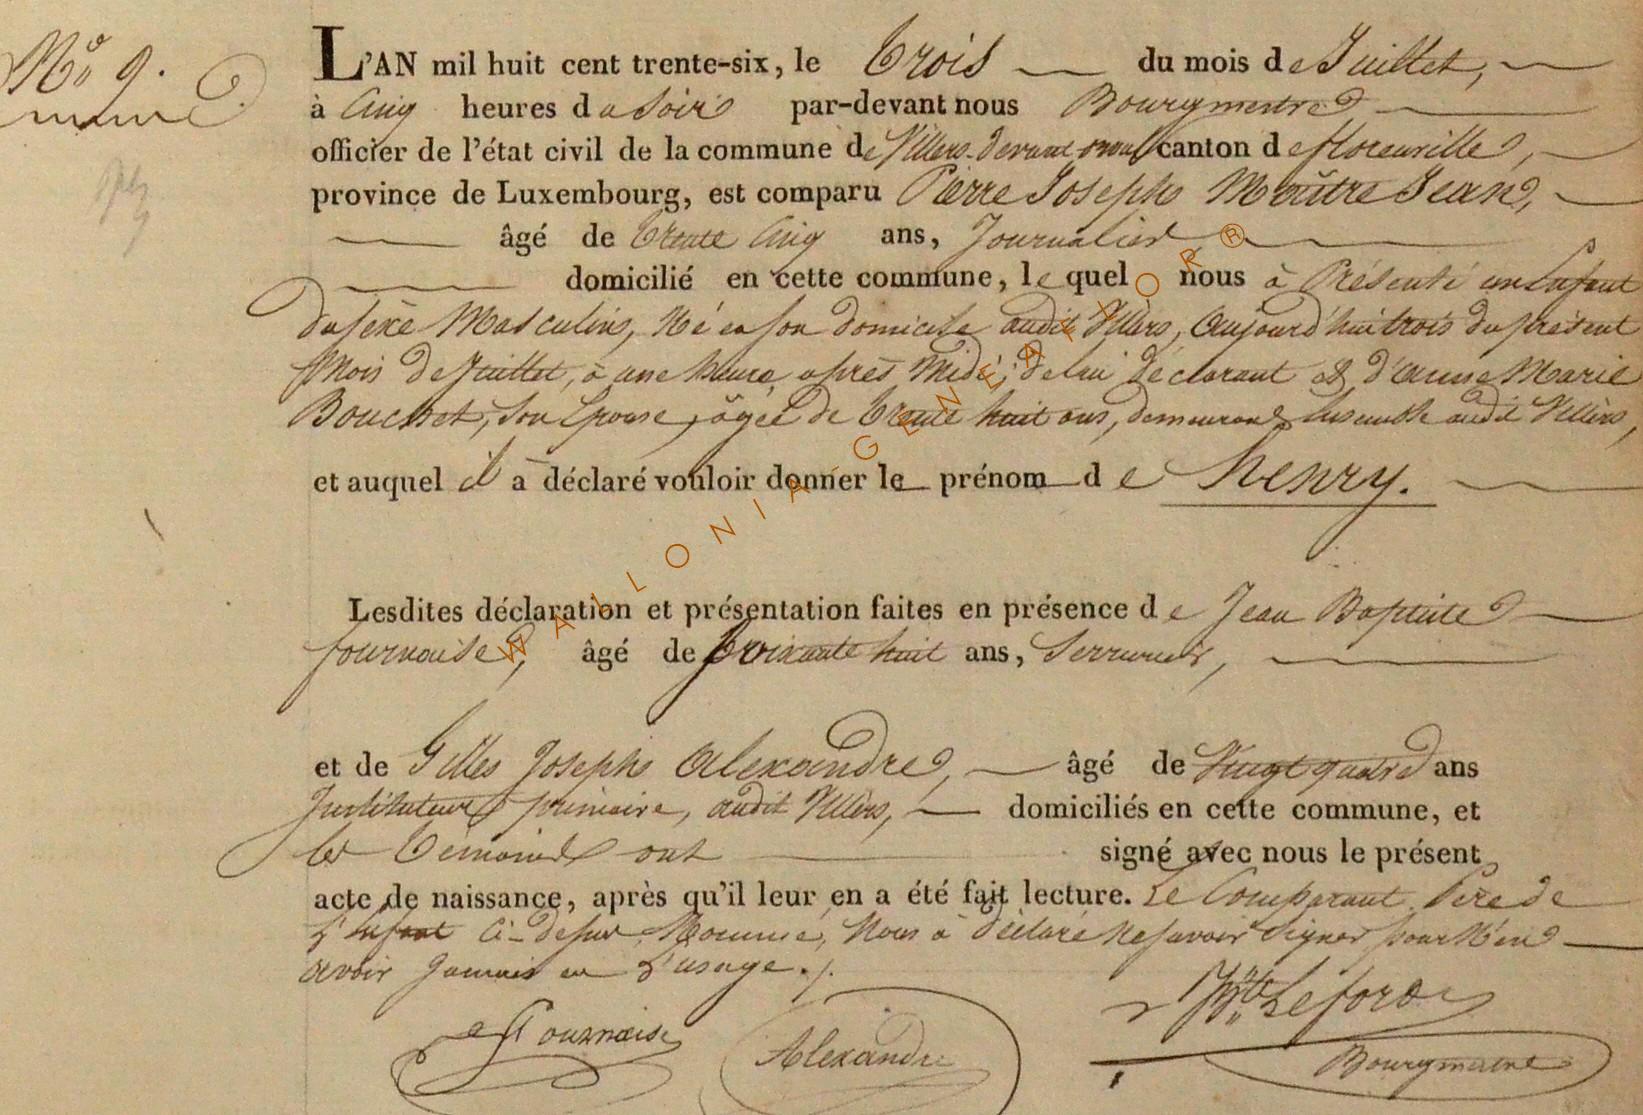 N° 9.
L'AN mil huit cent trente-six, le trois du mois de Juillet,
à cinq heures du Soir par-devant nous Bourgmestre
officier de l'état civil de la commune de Villers-devant-orval canton de florenville,
province de Luxembourg, est comparu Pierre Joseph Maître Jean,
âgé de trente cinq ans, Journalier
domicilié en cette commune, le quel nous à Présenté un Enfant
du sexe Masculin, Né en son domicile audit Villers, aujourd'hui trois du présent
Mois de Juillet, à une heure après Midi, de lui déclarant et d'anne Marie
Bouchet, son Epouse, âgée de trente huit ans, demeurant Ensemble audit Villers,
et auquel il a déclaré vouloir donner le prénom de henry.
Lesdites déclaration et présentation faites en présence de Jean Baptiste
fournaise, âgé de soixante huit ans, Serrurier,
et de Gilles Joseph Alexandre, âgé de Vingt quatre ans
Instituteur primaire, audit Villers, domiciliés en cette commune, et
les témoins ont signé avec nous le présent
acte de naissance, après qu'il leur en a été fait lecture. Le Comparant Père de
L'Enfant Ci-dessus Nommé, Nous à déclaré Ne savoir Signer pour N'en
avoir Jamais eu L'usage./.
Fournaise
Alexandre
Bourgmestre
WALLONIA GENEALOR®